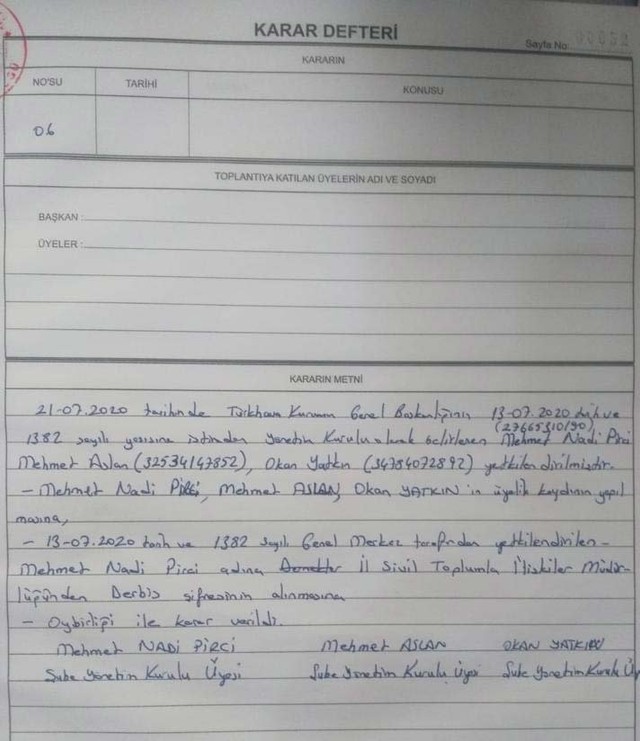 KARAR DEFTERİ
Sayfa No:
KARARIN
NO'SU TARİHİ KONUSU
06
TOPLANTIYA KATILAN ÜYELERİN ADI VE SOYADI
BAŞKAN :
ÜYELER :
KARARIN METNİ
21-07.2020 tarihinde Türkhava Kurumu Genel Başkanlığının 13-07.2020 tarih ve
(27665310190),
1382 sayılı yazısına istinaden Yönetim Kurulu olarak belirlenen Mehmet Nadi Pirci
Mehmet Aslan (32534147852), Okan Yatkın (34784072892) yetkilendirilmiştir.
- Mehmet Nadi PİRCİ, Mehmet ASLAN, Okan YATKIN'ın üyelik kaydının yapıl
masına,
- 13-07.2020 tarih ve 1382 sayılı Genel Merkez tarafından yetkilendirilen-
Mehmet Nadi Pirci adına İl Sivil Toplumla İlişkiler Müdür-
lüğünden Derbis şifresinin alınmasına
- Oybirliği ile karar verildi.
Mehmet NADİ PİRCİ Mehmet ASLAN OKAN YATKIN
Şube Yönetim Kurulu Üyesi Şube Yönetim Kurulu Üyesi Şube Yönetim Kurulu Üy